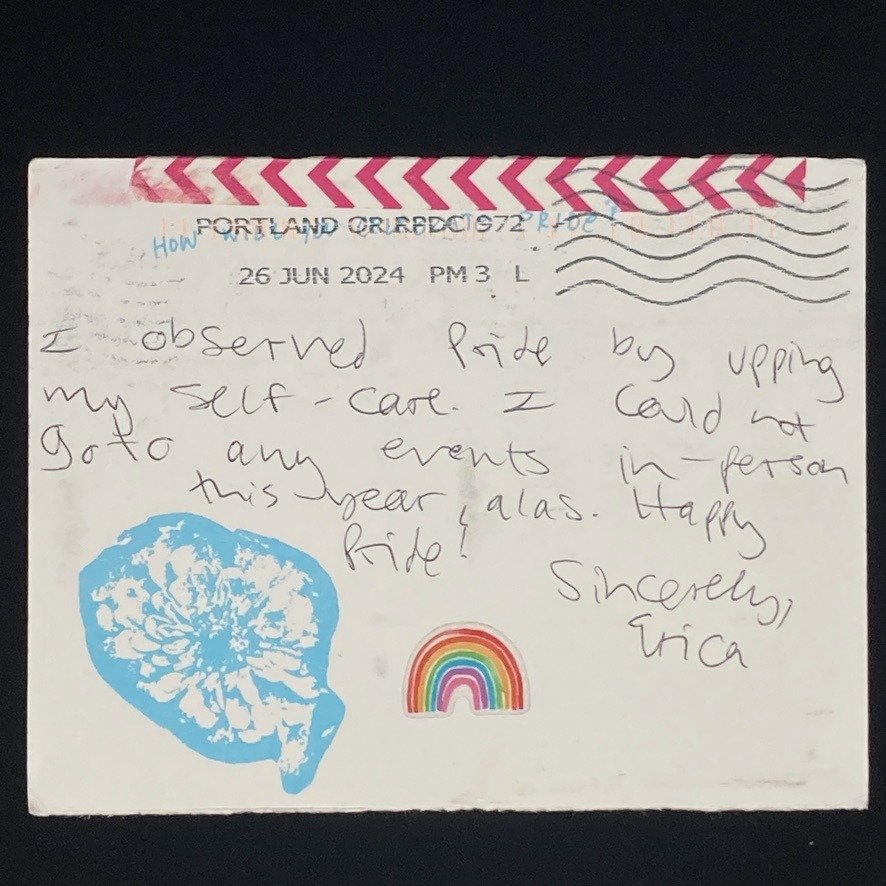 PORTLAND OR RPDC 972
HOW WILL YOU PRIDE?
26 JUN 2024 PM 3 L
I observed Pride by upping
my self-care. I could not
go to any events in-person
this year, alas. Happy
Pride!
Sincerely,
Erica